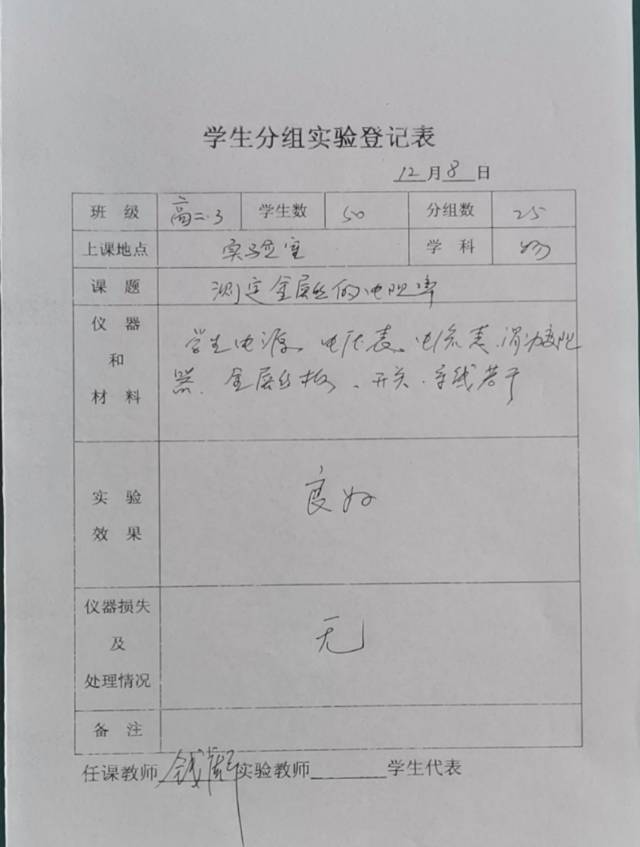 学生分组实验登记表
12月8日
班 级 高二.3 学生数 50 分组数 25
上课地点 实验室 学 科 物
课 题 测定金属丝的电阻率
仪 器 和 材 料 学生电源、电压表、电流表、滑动变阻
器、金属丝板、开关、导线若干
实 验 效 果 良好
仪器损失 及 处理情况 无
备 注
任课教师 钱 实验教师 学生代表